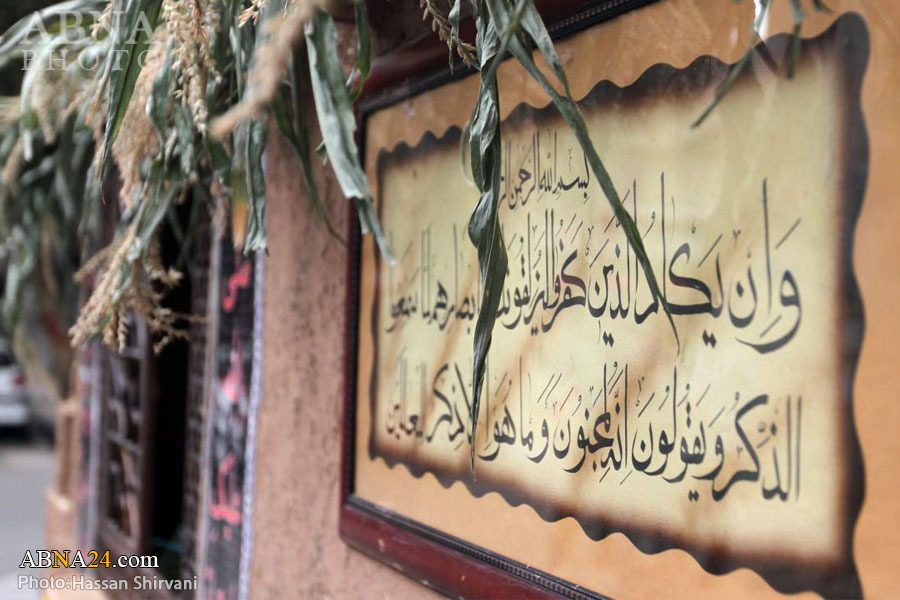 ABNA
PHOTO
بسم الله الرحمن
وَاِن يكادُ الذينَ كفروا ليزلقونك بابصارهم لما سمعوا
الذّكرَ وَ يَقولونَ انّه لمجنونَ وَ ما هوَ الا ذكر للعالمین
ABNA24.com
Photo:Hassan Shirvani